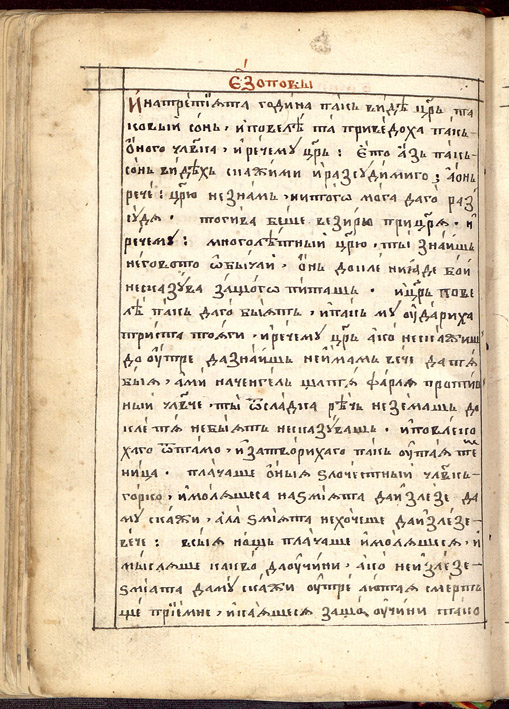 Єзоповы
И́ натретіѧта година пакь видѣ цр҃ь та
ковый сонь, и повелѣ та приведоха пакь
ѻ҆ного чл҃вка, и рече му цр҃ь : Е҆то а҆зь пакь
сонь видѣхь скажи ми и разсуди миго : а҆ ѻнь
рече : ц҃рю незнамь, ни могѡ мога да го раз
судѧ . тогива беше везирю при ц҃рѧ . и
рече му : многолѣтный ц҃рю, ты знаишь
неговото ѡбычай, ѻнь докле нигаде бой
несказува защо го питашь . и цр҃ь пове
лѣ пакь да го быѧть, и пакь му ᲂударихa
триста тоѧги, и рече му цр҃ь ако нескажишь
до ᲂутре да знаишь неймамь вече да тѧ
быѧ, а ми на ченгель щатѧ фарлѧ проти
ный чл҃вче, ты ѿ сладка рѣчь не земашь до
кле тѧ небыѧть несказувашь . и повлеко
хаго ѿтамо, и затворихаго пакь ᲂу таѧ те
ница . плачаше ѻныѧ злочестный чл҃вкь
горко, и молѧшеса на змиѧта да излезе да
му скажи, ала змиѧта не хочеше да излезе
вече : всыѧ нощь плачаше и молѧшесѧ, и
мыслѧше какво да ᲂучини, ако не излезе
змиата да му скажи ᲂутре лютаѧ смерть
ще прїемне, и каѧшесѧ защо ᲂучини тако